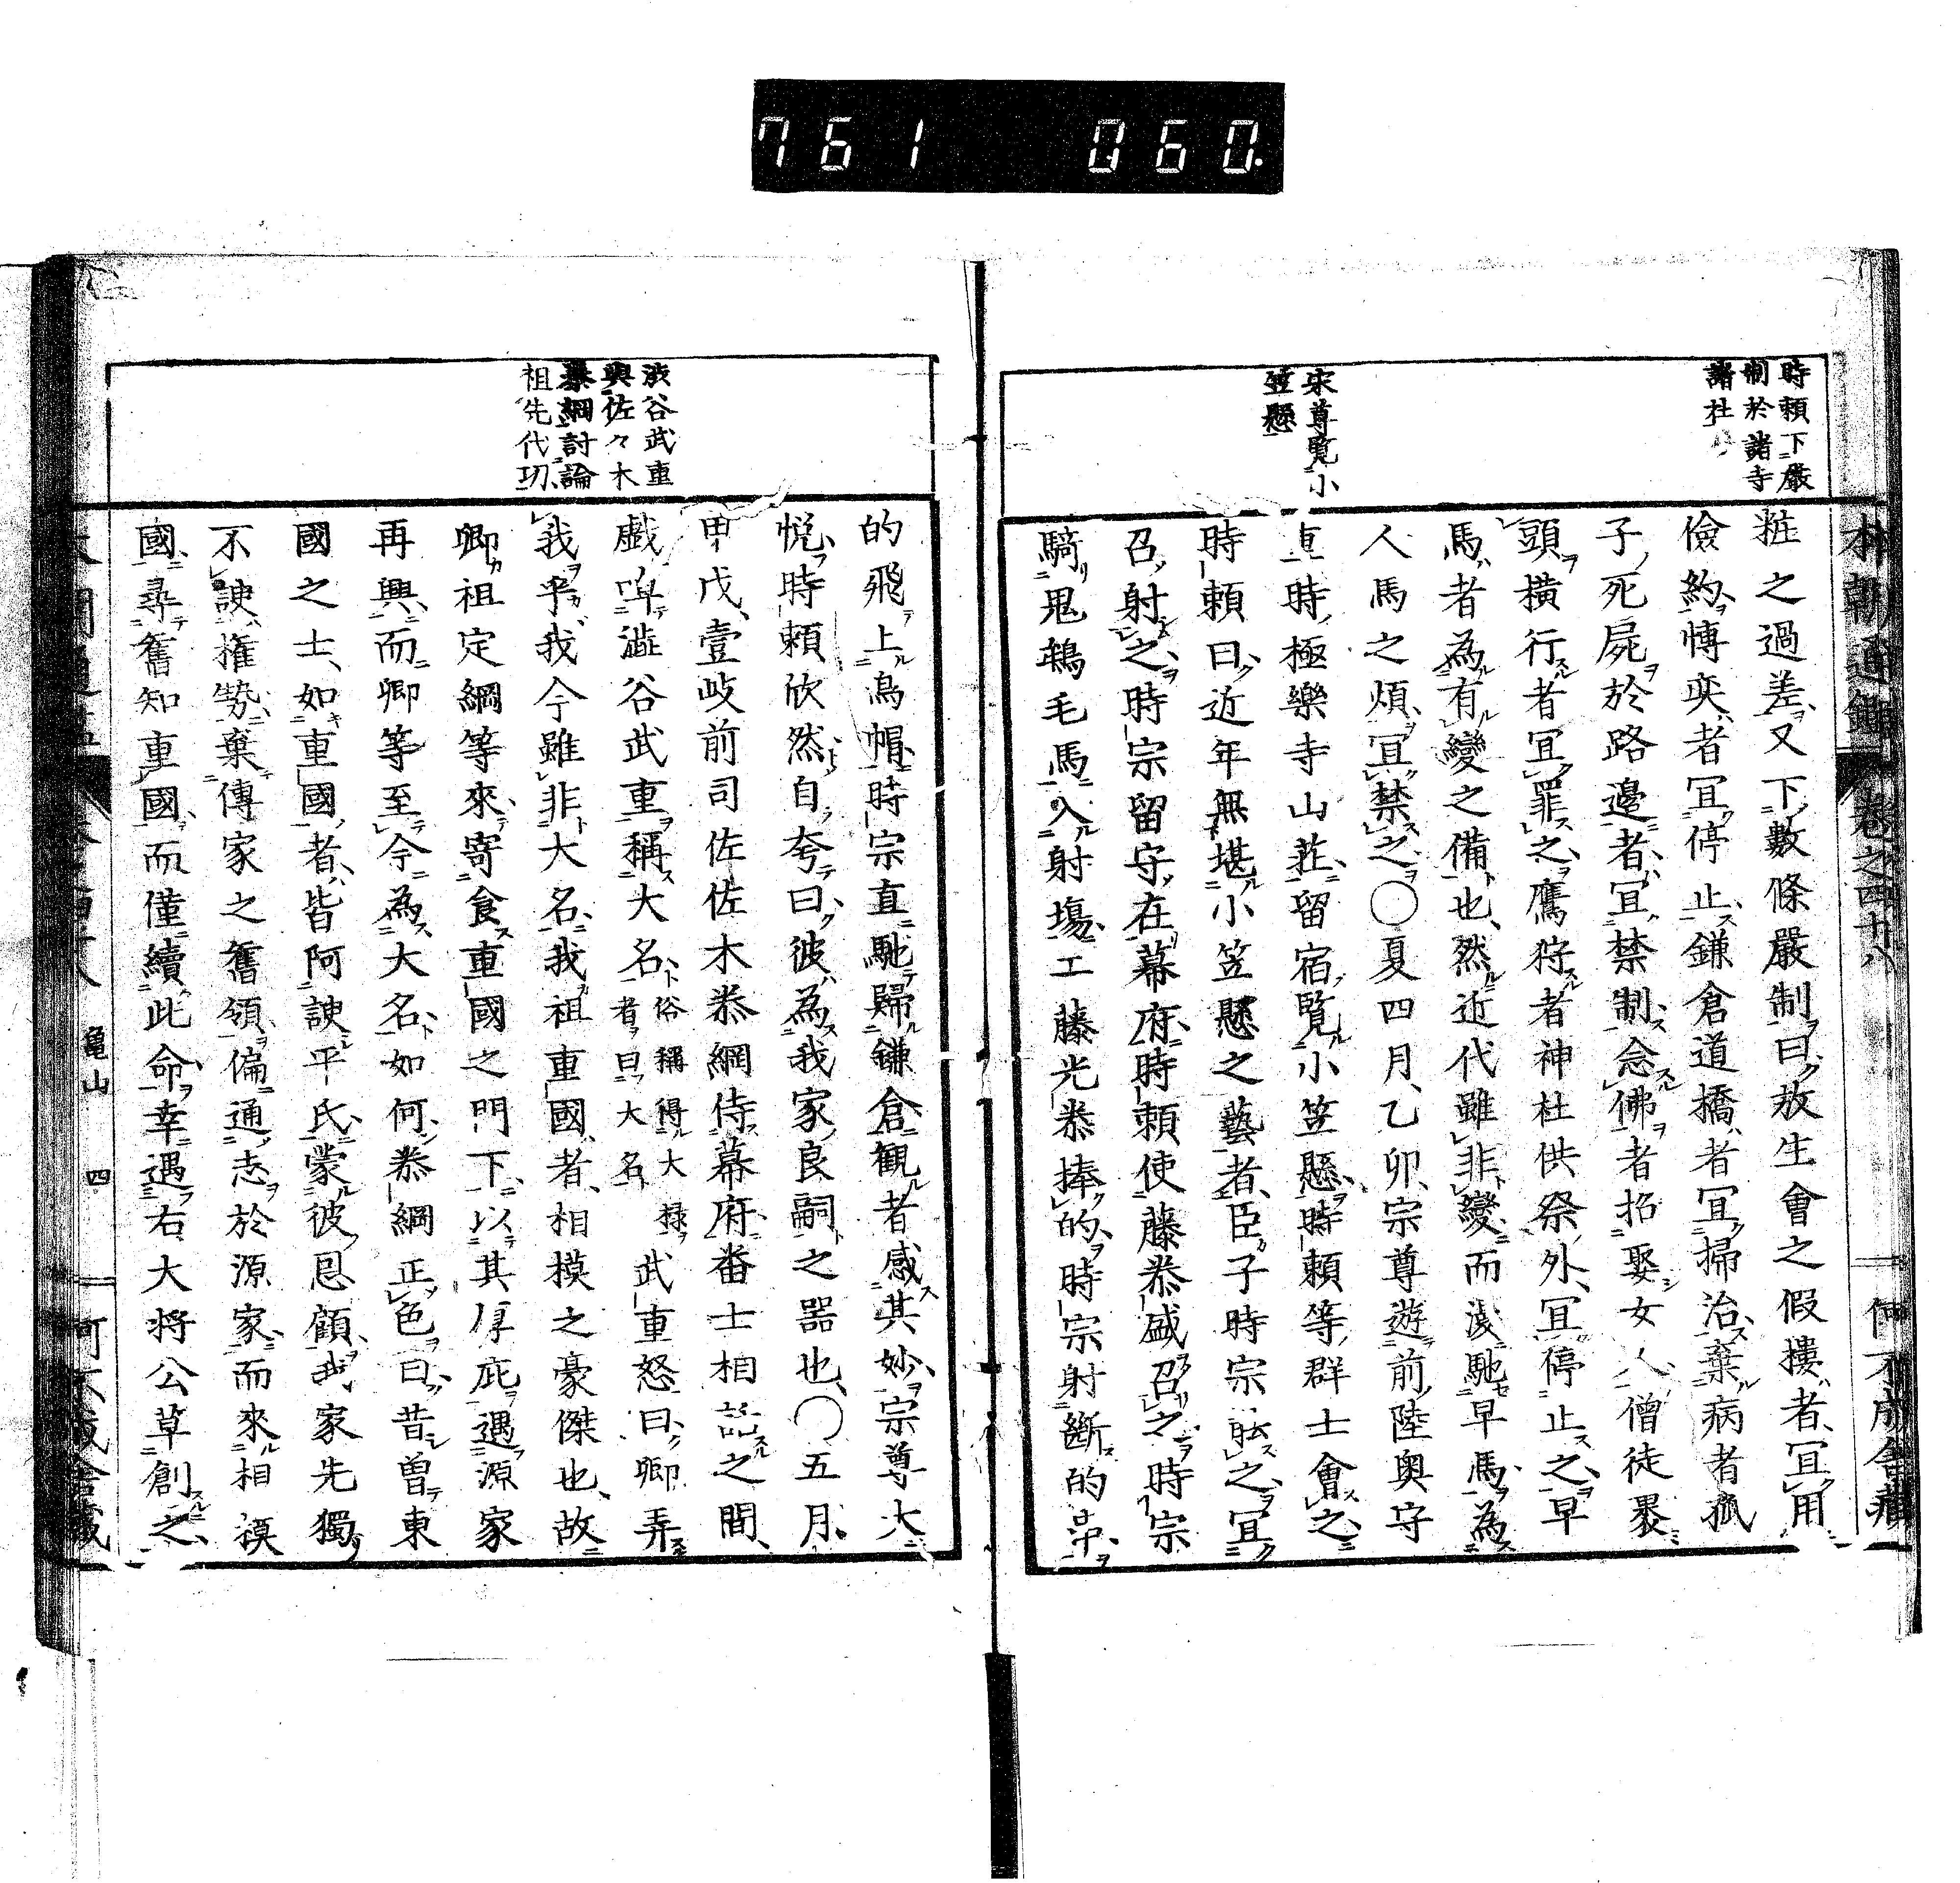 761 060.
本朝通鑑 卷之四十八
時頼下嚴
制於諸寺
諸社
宗尊覧小
笠懸
粧之過差又下數條嚴制曰放生會之假捿者冝用
儉約愽奕者冝停止鎌倉道橋者冝掃治棄病者孤
子死屍於路邉者冝禁制念佛者招娶女人僧徒褁
頭横行者冝罪之鷹狩者神社供祭外冝停止之早
馬者為有變之備也然近代雖非變而淺馳早馬為
人馬之煩冝禁之〇夏四月乙卯宗尊遊前陸奥守
重時極樂寺山莊留宿覧小笠懸時頼等群士會之
時頼曰近年無堪小笠懸之藝者臣子時宗能之冝
召射之時宗留守在幕府時頼使藤㳟盛召之時宗
騎鬼鵇毛馬入射塲工藤光㳟捧的時宗射斷的串
渋谷武重
與佐々木
㳟綱討論
祖先代功
的飛上烏帽時宗直馳歸鎌倉観者感其妙宗尊大
悦時頼欣然自夸曰彼為我家良嗣之器也〇五月
甲戊壹岐前司佐佐木㳟綱侍幕府番士相話之間
戯卑澁谷武重稱大名俗稱得大禄者曰大名武重怒曰卿弄
我乎我今雖非大名我祖重國者相摸之豪傑也故
卿祖定綱等來寄食重國之門下以其厚庇遇源家
再興而卿等至今為大名如何㳟綱正色曰昔曽東
國之士如重國者皆阿諛平氏蒙彼恩顧我家先獨
不諛權勢棄傳家之舊領偏通志於源家而來相摸
國尋舊知重國而僅續此命幸遇右大将公草創之
龜山 四